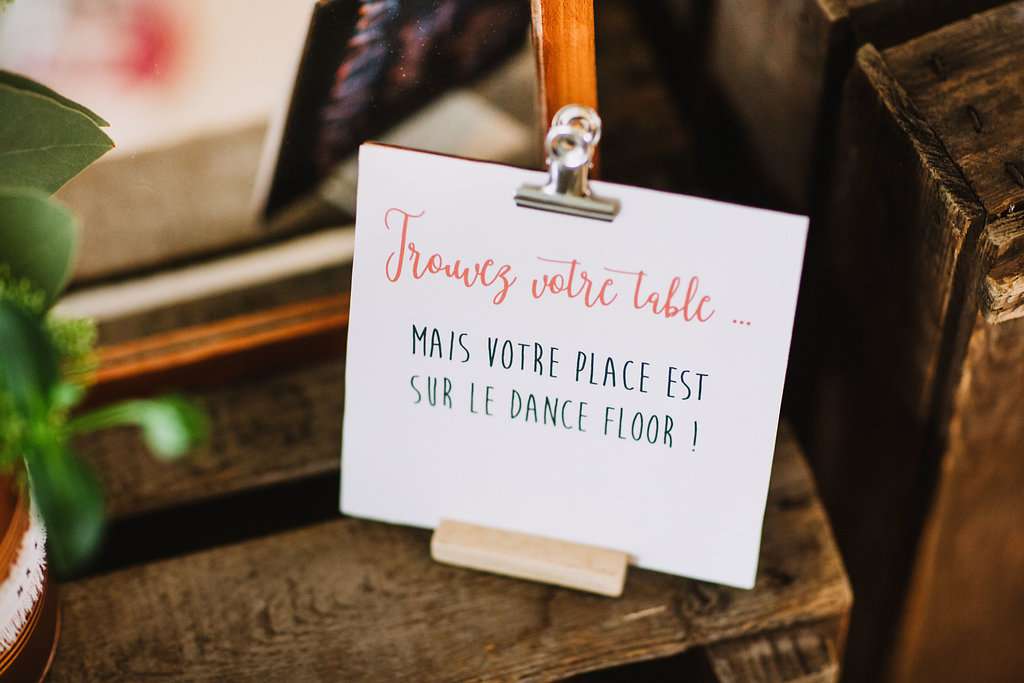 Trouvez votre table ...
MAIS VOTRE PLACE EST
SUR LE DANCE FLOOR !